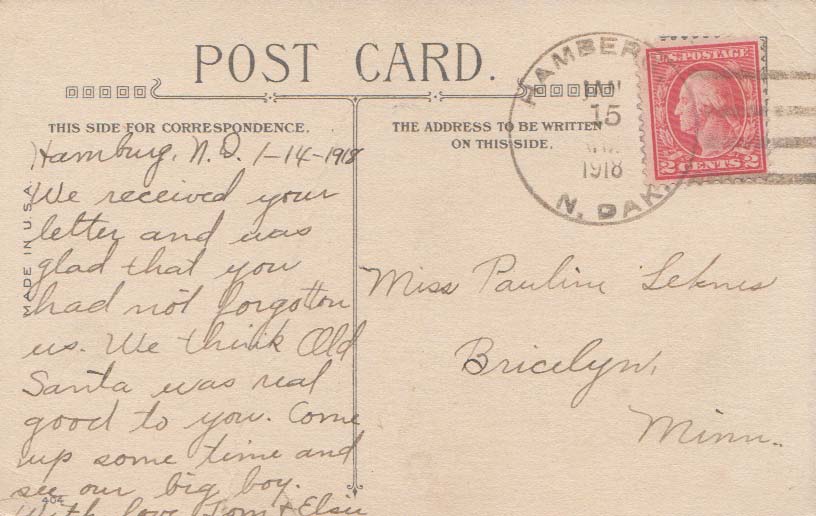 POST CARD.
THIS SIDE FOR CORRESPONDENCE.
THE ADDRESS TO BE WRITTEN
ON THIS SIDE.
MADE IN U.S.A.
Hamburg, N.D. 1-14-1918
We received your
letter and was
glad that you
had not forgotton
us. We think Old
Santa was real
good to you. Come
up some time and
see our big boy.
With love Tom & Elsie
404
HAMBER
JAN
15
1918
N. DAK.
U.S. POSTAGE
2 CENTS 2
Miss Pauline Leknes
Bricelyn,
Minn.